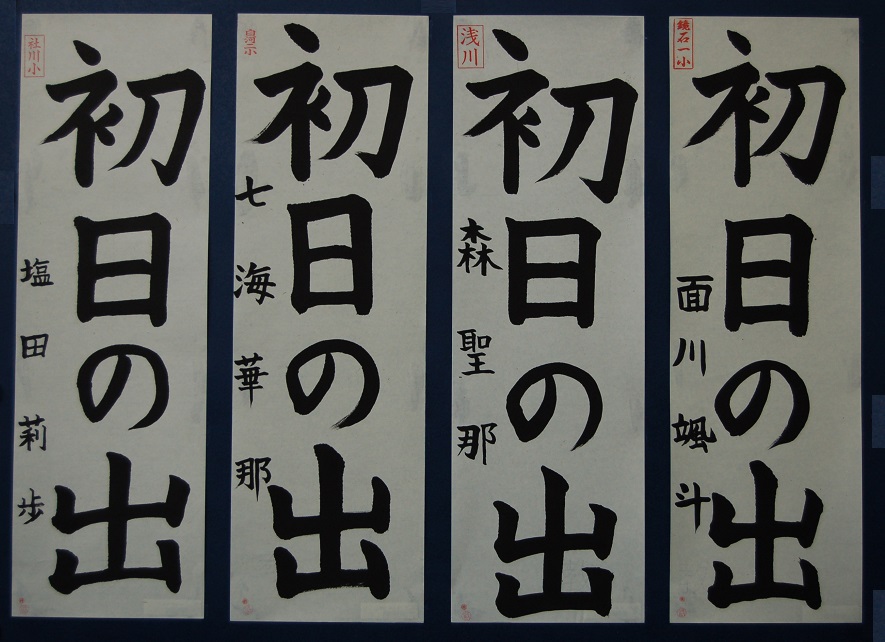 鏡石一小
初日の出
面川颯斗
浅川
初日の出
森聖那
初日の出
七海華那
社川小
初日の出
塩田莉歩